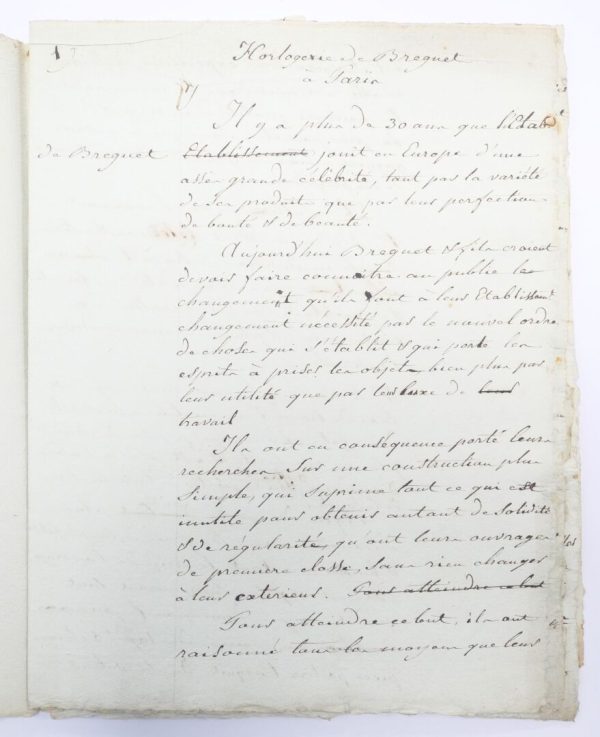 1
Horlogerie de Breguet
à Paris
Il y a plus de 30 ans que l'Etabt
de Breguet Etablissement jouit en Europe d'une
assez grande célébrité, tant par la variété
de ses produits que par leur perfection
de bonté & de beauté.
Aujourd'hui Breguet & fils croient
devoir faire connaître au public les
changement qu'ils font à leur Etablissemt
changement nécessité par le nouvel ordre
de choses qui s'établit & qui porte les
esprits à priser les objets bien plus par
leur utilité que par leur luxe de leur
travail
Ils ont en conséquence porté leurs
recherches sur une construction plus
simple, qui suprime tout ce qui est
inutile pour obtenir autant de solidité
& de régularité qu'ont leurs ouvrages
de première classe, sans rien changer
à leur extérieur. Pour atteindre ce but
Pour atteindre ce but, ils ont
raisonné tous les moyens que leur